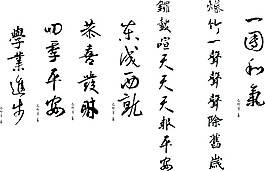 一團和氣
爆竹一聲聲聲除舊歲
鑼鼓喧天天天報平安
東成西就
恭喜發財
四季平安
學業進步